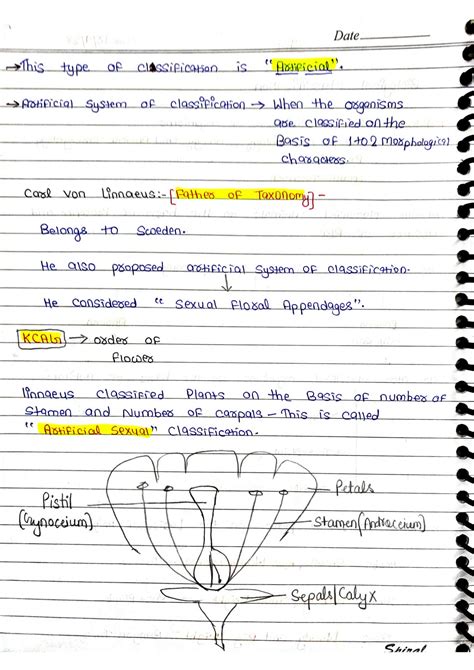 Date
→This type of classification is "Artificial".
→Artificial System of classification → When the organisms
are classified on the
Basis of 1 to 2 Morphological
characters.
Carl von Linnaeus:-[Father of Taxonomy]-
Belongs to Sweden.
He also proposed artificial System of classification.
↓
He considered "Sexual Floral Appendages".
KCAG → order of
flower
linnaeus classified Plants on the Basis of number of
Stamen and Number of carpals - This is called
"Artificial Sexual" Classification.
Petals
Pistil
(Gynoecium)
Stamen(Androecium)
Sepals/Calyx